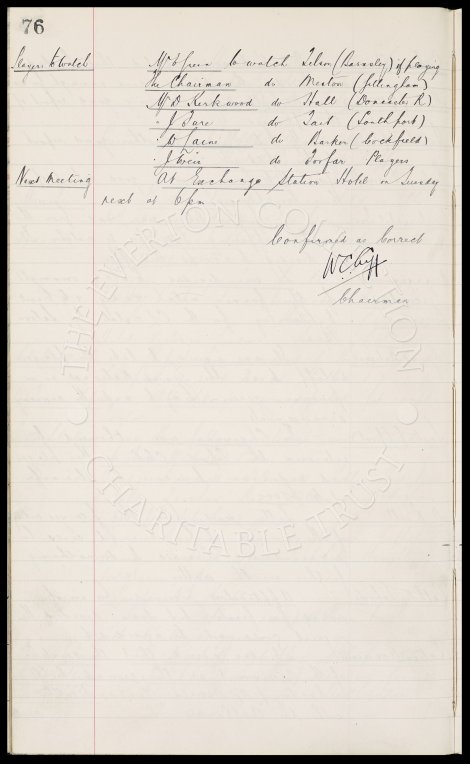 76
Players to watch Mr E Green to watch Tilson (Barnsley) if playing
The Chairman do Meston (Gillingham)
Mr D Kirkwood do Hall (Doncaster R)
" J Fare do Tait (Southport)
" W Sawyer do Barker (Cockfield)
" J do Forfar Players
Next Meeting At Exchange Station Hotel on Tuesday
next at 6pm
Confirmed as Correct
W.C. Cuff
Chairman
THE EVERTON COLLECTION
CHARITABLE TRUST